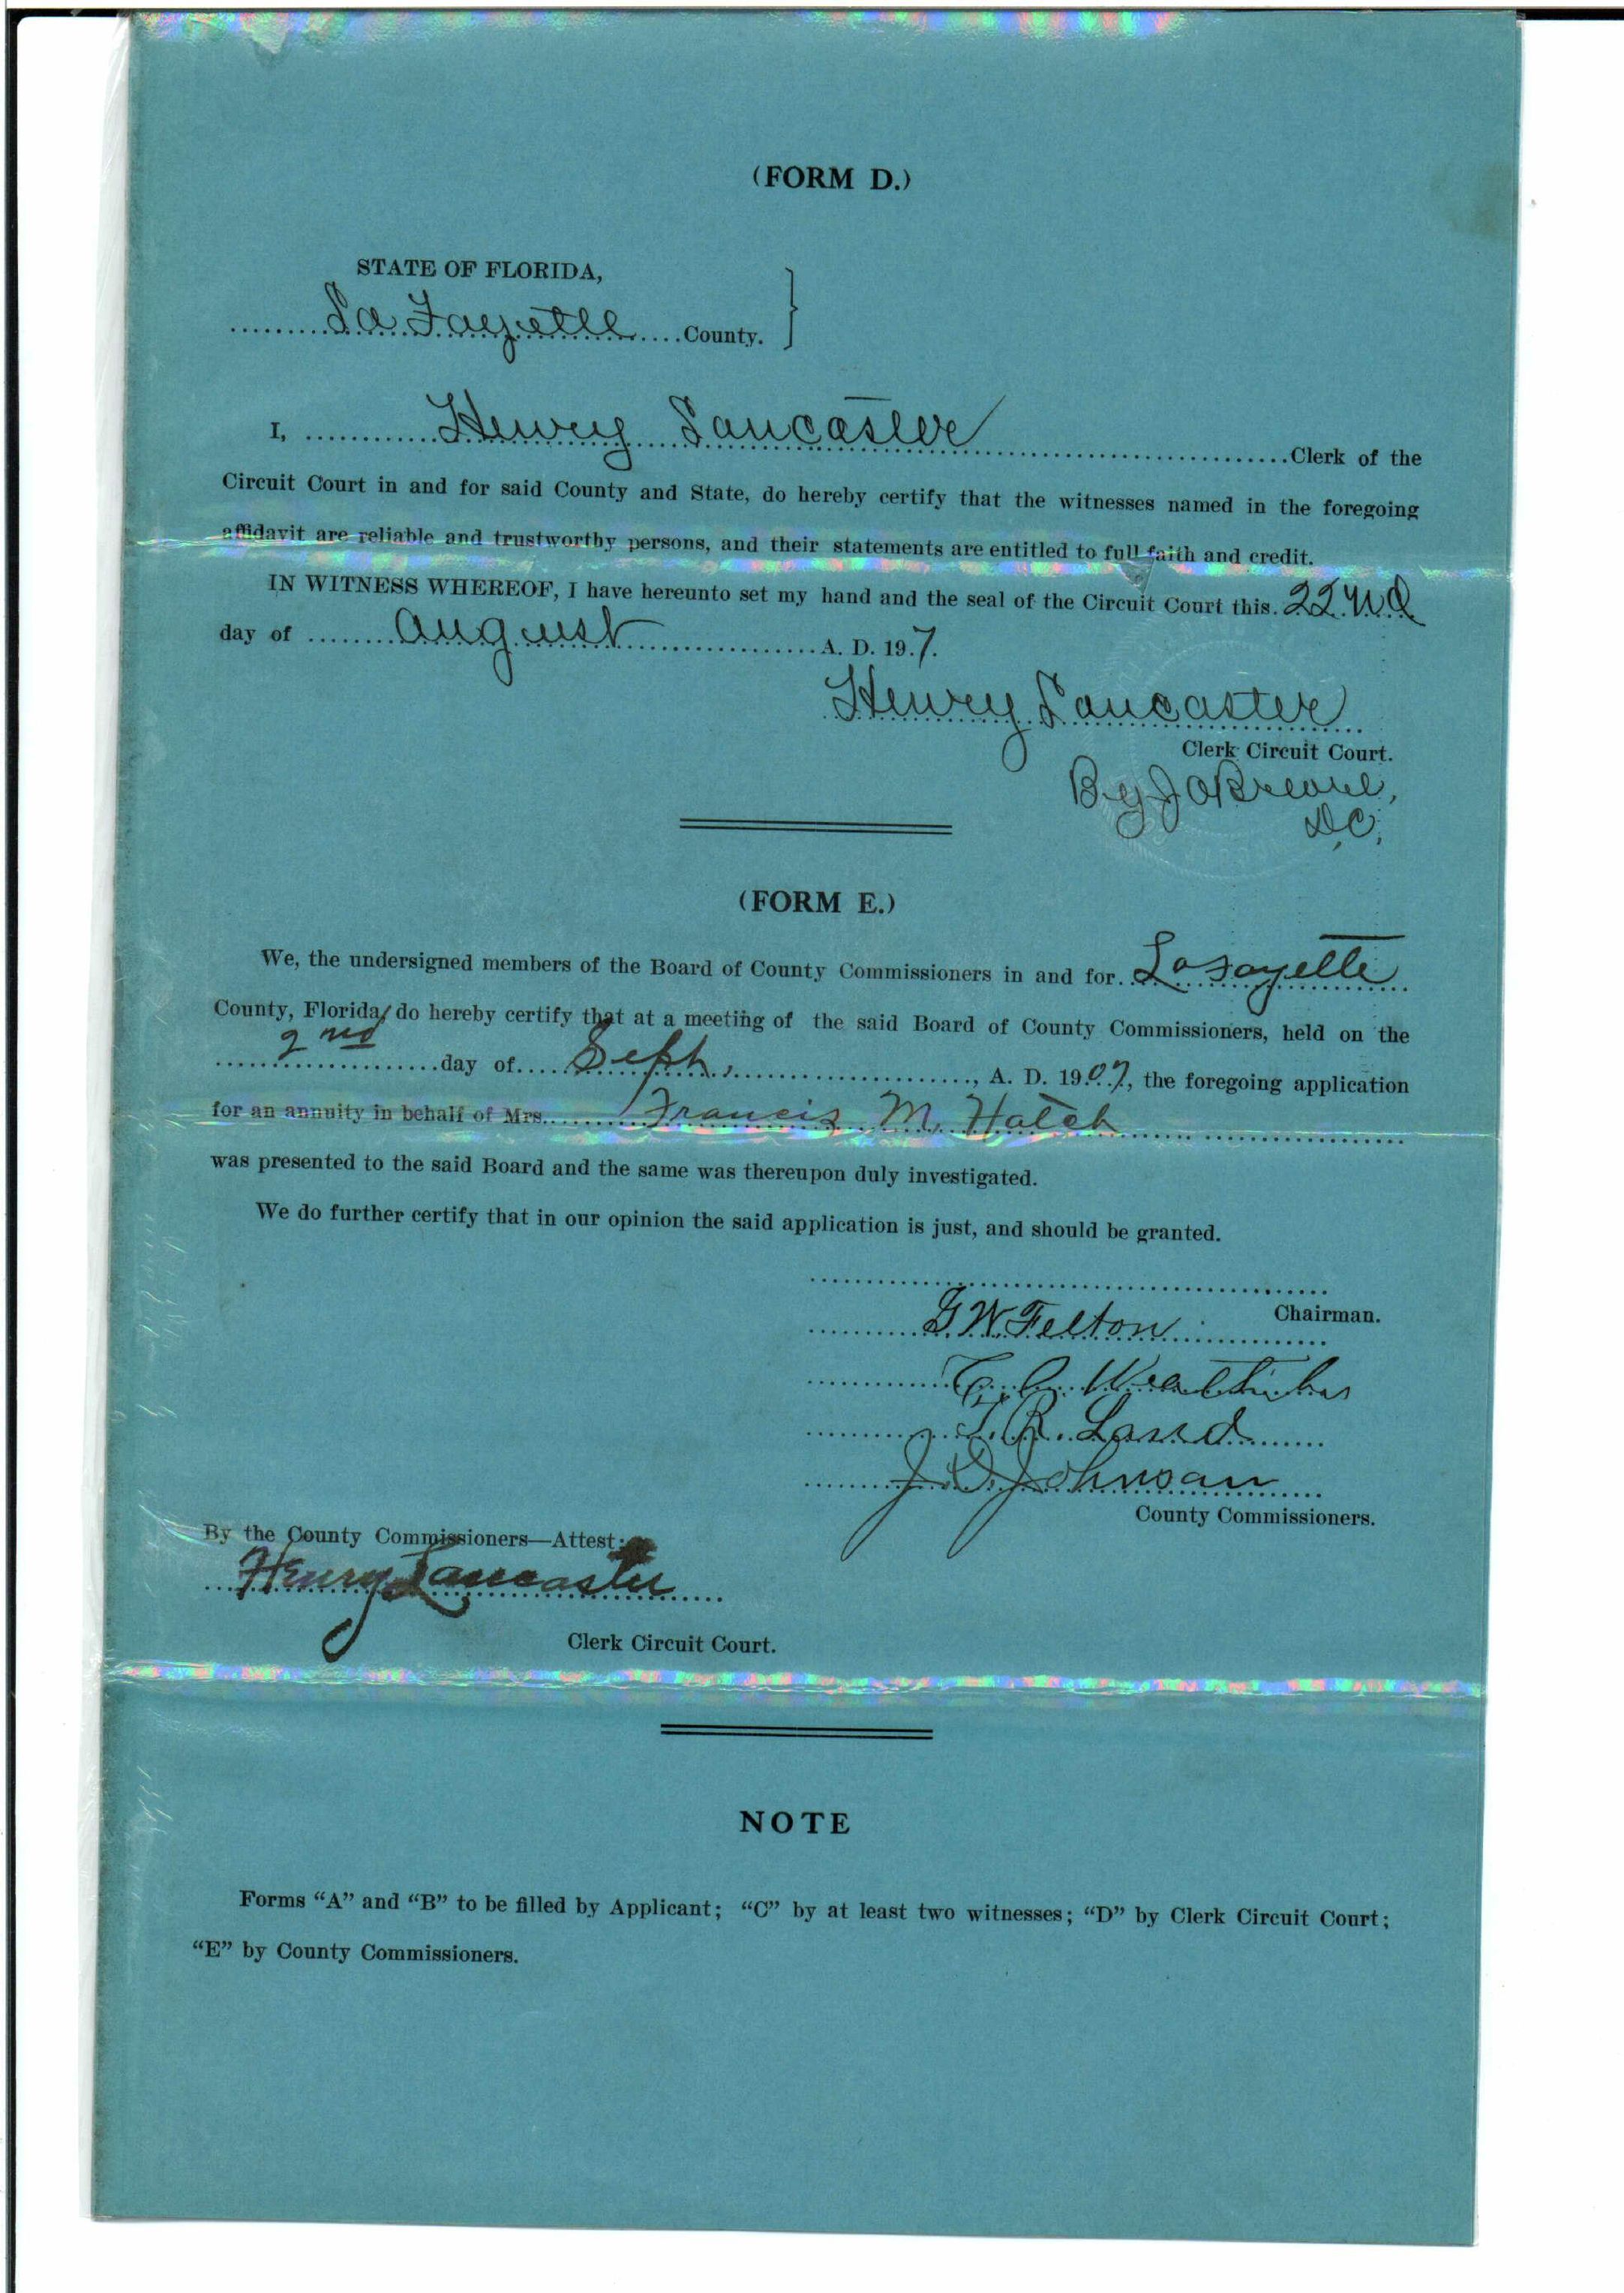 (FORM D.)
STATE OF FLORIDA,
La Fayette County.
I, Henry Lancaster Clerk of the
Circuit Court in and for said County and State, do hereby certify that the witnesses named in the foregoing
affidavit are reliable and trustworthy persons, and their statements are entitled to full faith and credit.
IN WITNESS WHEREOF, I have hereunto set my hand and the seal of the Circuit Court this 22nd
day of August A. D. 197.
Henry Lancaster
Clerk Circuit Court.
By J O
D,C,
(FORM E.)
We, the undersigned members of the Board of County Commissioners in and for Lafayette
County, Florida, do hereby certify that at a meeting of the said Board of County Commissioners, held on the
2nd day of Sept, A. D. 1907, the foregoing application
for an annuity in behalf of Mrs. Francis M, Hatch
was presented to the said Board and the same was thereupon duly investigated.
We do further certify that in our opinion the said application is just, and should be granted.
Chairman.
G W Felton
T. R. Land
J. D. Johnson
County Commissioners.
By the County Commissioners—Attest:
Henry Lancaster
Clerk Circuit Court.
NOTE
Forms "A" and "B" to be filled by Applicant; "C" by at least two witnesses; "D" by Clerk Circuit Court;
"E" by County Commissioners.